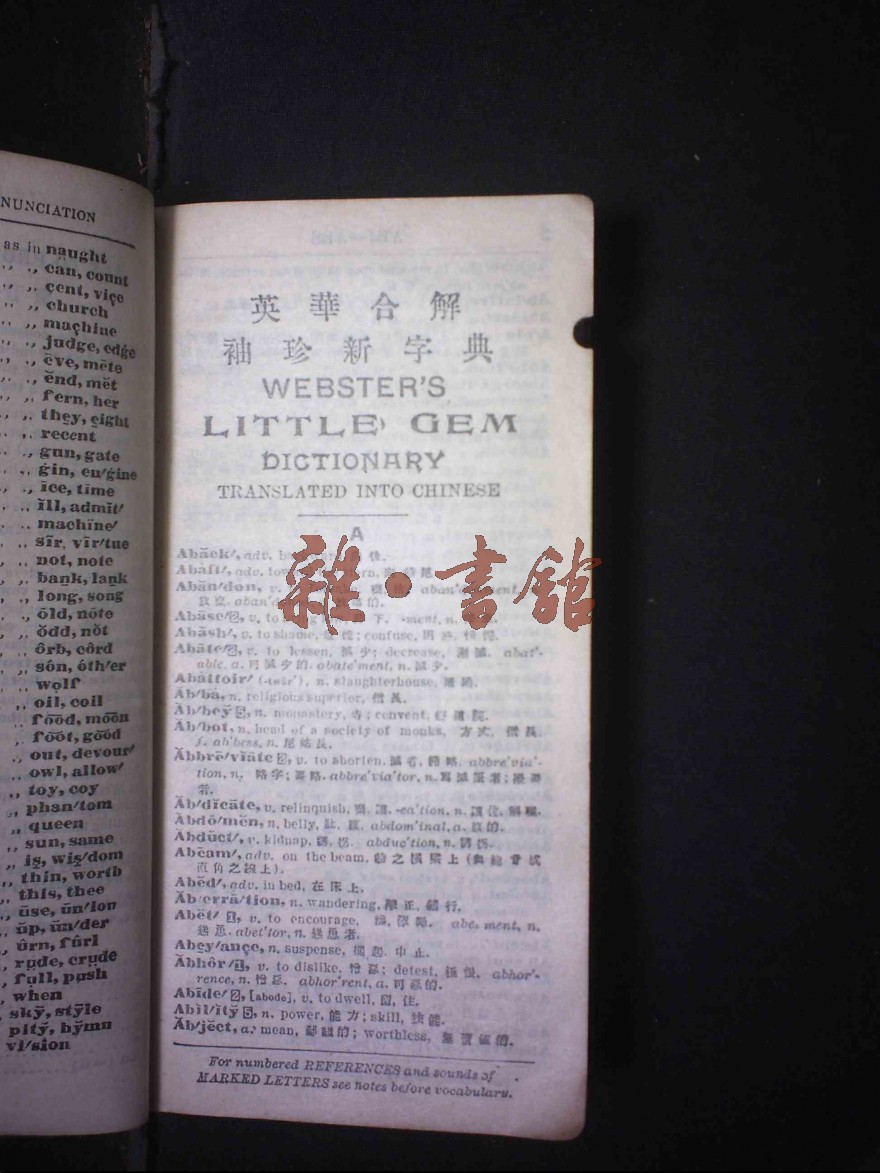 NUNCIATION
as in naught
,, ,, can, count
,, ,, çent, viçe
,, ,, church
,, ,, maçhine
,, ,, judge, edġe
,, ,, ēve, mēte
,, ,, ĕnd, mĕt
,, ,, fern, her
,, ,, they, eight
,, ,, recent
,, ,, gun, gate
,, ,, ġin, en′ġine
,, ,, īce, tīme
,, ,, ĭll, admĭt′
,, machïne′
,, sīr, vīr′tue
,, not, note
,, baṉk, laṉk
,, long, song
,, ōld, nōte
,, ŏdd, nŏt
,, ôrb, côrd
,, són, óth′er
,, wolf
,, oil, coil
,, fo͞od, mo͞on
,, fo͝ot, go͝od
,, out, devour′
,, owl, allow′
,, toy, coy
,, phan′tom
,, queen
,, sun, same
,, iş, wiş′dom
,, thin, worth
,, this, thee
,, ūse, ūn′ion
,, ŭp, ŭn′der
,, ûrn, fûrl
,, rude, crude
,, full, push
,, when
,, skȳ, stȳle
pitў, hўmn
vi′sion
英華合解
袖珍新字典
WEBSTER'S
LITTLE GEM
DICTIONARY
TRANSLATED INTO CHINESE
A
雜·書館
Abăck′, adv.
Abaft′, adv.
Abăn′don, v.
aban′
Abāse′ 2, v. to -ment, n.
Abăsh′, v. to shame, confuse,
Abāte′ 2, v. to lessen, 減少; decrease, abat′-
able, a. 可減少的. abate′ment, n. 減少.
Abattoir′ n. slaughterhouse,
Ăb′bā, n. religious superior, 僧長.
Ăb′beў 5, n. monastery, 寺; convent,
Ăb′bot, n. head of a society of monks, 方丈, 僧長
f. ab′bess, n. 尼姑長.
Ăbbrē′viāte 2, v. to shorten, 減省, abbre′via′-
tion, n. 略字; abbre′via′tor, n.
Ăb′dĭcāte, v. relinquish, -ca′tion, n.
Ăbdō′mĕn, n. belly, 肚, 腹. abdom′inal, a. 腹的.
Ăbdŭct′, v. kidnap, 誘拐. abduc′tion, n. 誘拐.
Abēam′, adv. on the beam,
直角之線上).
Abĕd′, adv. in bed, 在床上.
Ăb′errā′tion, n. wandering, 離正, 錯行.
Abĕt′ 1, v. to encourage, abe, ment, n.
abet′tor, n.
Abey′ançe, n. suspense, 中止.
Ăbhôr′ 1, v. to dislike, detest, abhor′-
rence, n. abhor′rent, a. 可惡的.
Abīde′ 2, [abode], v. to dwell, 居, 住.
Abĭl′ĭtў 5, n. power, 能力; skill, 技能.
Ăb′jĕct, a. mean, worthless, 無價値的.
For numbered REFERENCES and sounds of
MARKED LETTERS see notes before vocabulary.